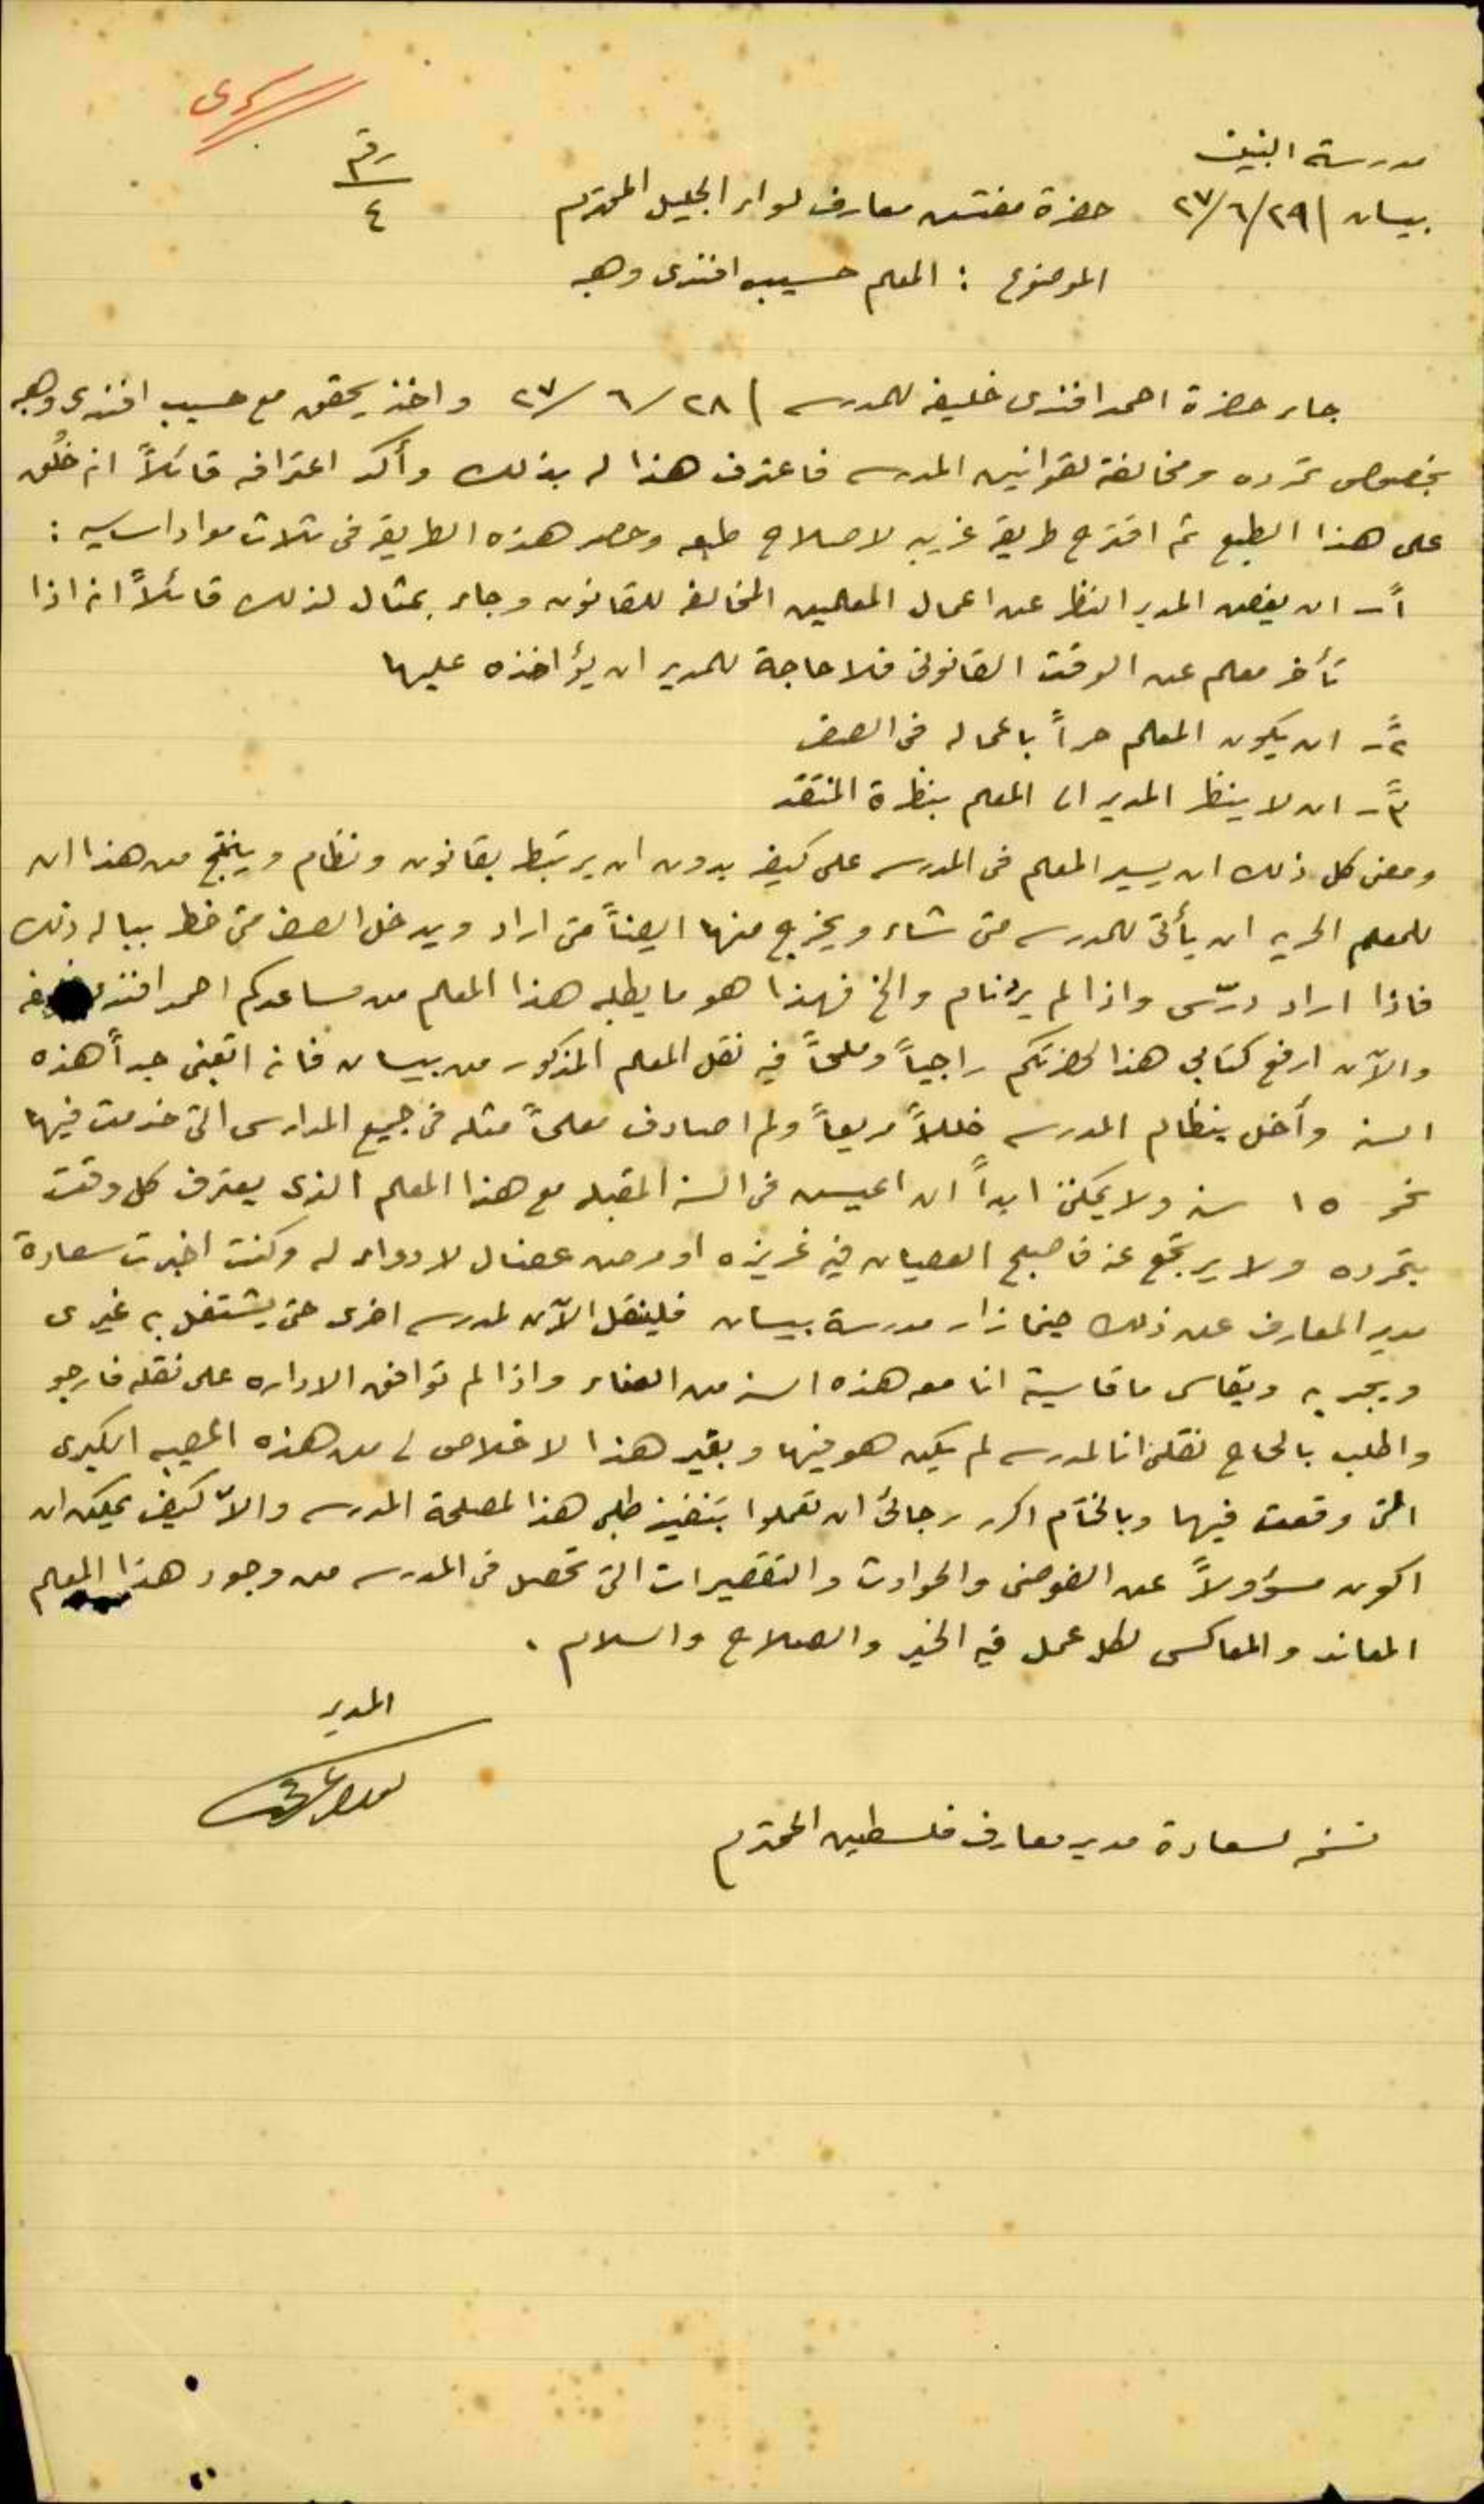 سري
مدرسة البنين
رقم
٤
بيسان ٢٩/٦/٢٧ حضرة مفتش معارف لواء الجليل المحترم
الموضوع : المعلم حسيب افندي وهبه
جاء حضرة احمد افندي خليفه للمدرسه ٢٨/٦/٢٧ واخذ يحقق مع حسيب افندي وهبه
بخصوص تمرده ومخالفة لقوانين المدرسه فاعترف هذا له بذلك وأكد اعترافه قائلاً انه خُلق
على هذا الطبع ثم اقترح طريقه غريبه لاصلاح طبعه وحصر هذه الطريقه في ثلاث مواد اساسيه :
١ً- ان يغض المدير النظر عن اعمال المعلمين المخالفه للقانون وجاء بمثال لذلك قائلاً انه اذا
تأخر معلم عن الوقت القانوني فلا حاجة للمدير ان يؤاخذه عليها
٢ً- ان يكون المعلم حراً باعماله في الصف
٣ً- ان لا ينظر المدير الى المعلم بنظرة المنتقد
ومعنى كل ذلك ان يسير المعلم في المدرسه على كيفه بدون ان يرتبط بقانون ونظام وينتج من هذا ان
للمعلم الحريه ان يأتي للمدرسه متى شاء ويخرج منها ايضاً متى اراد ويدخل الصف متى خطر بباله ذلك
فاذا اراد درّس واذا لم يرد نام والخ فهذا هو ما يطلبه هذا المعلم من مساعدكم احمد افندي
والآن ارفع كتابي هذا لحضرتكم راجياً وملحاً فيه نقل المعلم المذكور من بيسان فانه اتعبني جداً هذه
السنه وأخل بنظام المدرسه خللاً مريعاً ولم اصادف معلماً مثله في جميع المدارس التي خدمت فيها
نحو ١٥ سنه ولا يمكنني ابداً ان اعيش في السنه المقبله مع هذا المعلم الذي يعترف كل وقت
بتمرده ولا يرتجع عنه فاصبح العصيان فيه غريزه او مرض عضال لا دواء له وكنت اخبرت سعادة
مدير المعارف عن ذلك حينما زار مدرسة بيسان فلينقل الآن لمدرسه اخرى حتى يشتغل به غيري
ويجربه ويقاسي ما قاسيته انا معه هذه السنه من العناء واذا لم توافق الاداره على نقله فارجو
واطلب بالحاح نقلي انا لمدرسه لم يكن هو فيها وبغير هذا لا خلاص لي من هذه المصيبه الكبرى
التي وقعت فيها وبالختام اكرر رجائي ان تعملوا بتنفيذ طلبي هذا لمصلحة المدرسه والاّ كيف يمكن ان
اكون مسؤولاً عن الفوضى والحوادث والتقصيرات التي تحصل في المدرسه من وجود هذا المعلم
المعاند والمعاكس لكل عمل فيه الخير والصلاح والسلام .
المدير
نسخه لسعادة مدير معارف فلسطين المحترم